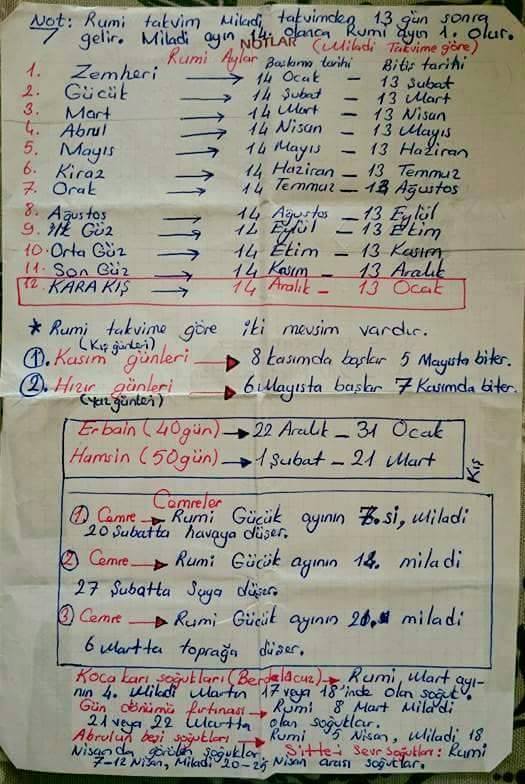 Not: Rumi takvim Miladi, takvimden 13 gün sonra
gelir. Miladi ayın 14. olanca Rumi ayın 1. olur.
NOTLAR (Miladi Takvime göre)
Rumi Aylar Başlama tarihi Bitiş tarihi
1. Zemheri → 14 Ocak – 13 Şubat
2. Gücük → 14 Şubat – 13 Mart
3. Mart → 14 Mart – 13 Nisan
4. Abrul → 14 Nisan – 13 Mayıs
5. Mayıs → 14 Mayıs – 13 Haziran
6. Kiraz → 14 Haziran – 13 Temmuz
7. Orak → 14 Temmuz – 13 Ağustos
8. Ağustos → 14 Ağustos – 13 Eylül
9. İlk Güz → 14 Eylül – 13 Ekim
10. Orta Güz → 14 Ekim – 13 Kasım
11. Son Güz → 14 Kasım – 13 Aralık
12. KARA KIŞ → 14 Aralık – 13 Ocak
* Rumi takvime göre iki mevsim vardır.
(Kış günleri)
1. Kasım günleri → 8 kasımda başlar 5 Mayısta biter.
2. Hızır günleri → 6 Mayısta başlar 7 Kasımda biter.
(Yaz günleri)
Erbain (40 gün) → 22 Aralık – 31 Ocak
Hamsin (50 gün) → 1 Şubat – 21 Mart
Kış
Cemreler
1 Cemre → Rumi Gücük ayının 7.si, Miladi
20 Şubatta havaya düşer.
2 Cemre → Rumi Gücük ayının 14. miladi
27 Şubatta Suya düşer.
3 Cemre → Rumi Gücük ayının 21. miladi
6 Martta toprağa düşer.
Koca karı soğukları (Berdelacuz) → Rumi Mart ayı-
nın 4. Miladi Martın 17 veya 18'inde olan soğuk.
Gün dönümü fırtınası → Rumi 8 Mart Miladi
21 veya 22 Martta olan soğuklar.
Abrulun beşi soğukları → Rumi 5 Nisan, Miladi 18
Nisanda görülen soğuklar. Sitte-i Sevr soğukları: Rumi
7-12 Nisan, Miladi 20-25 Nisan arası soğuklar.